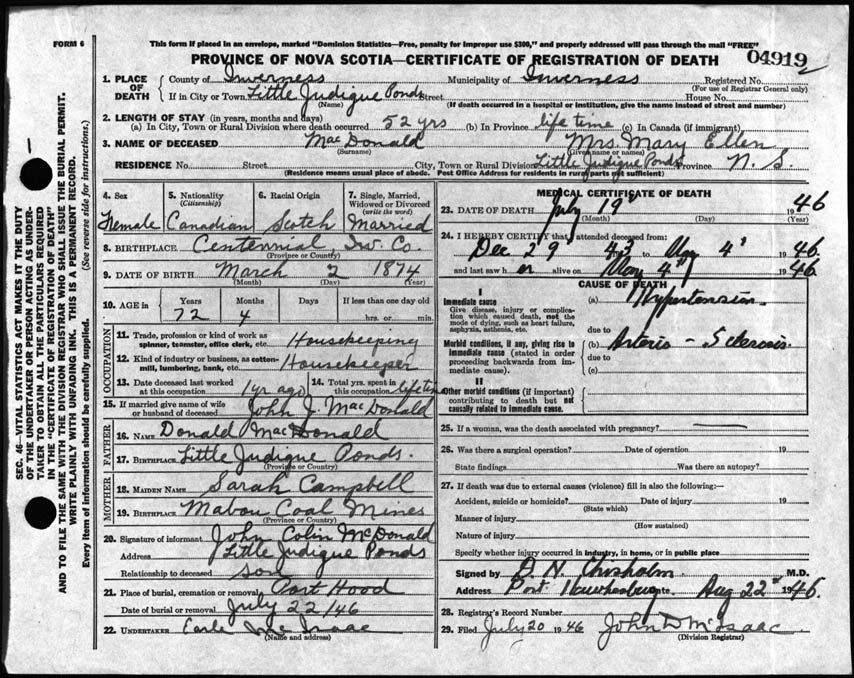 FORM 6
This form if placed in an envelope, marked "Dominion Statistics—Free, penalty for improper use $300," and properly addressed will pass through the mail "FREE"
PROVINCE OF NOVA SCOTIA—CERTIFICATE OF REGISTRATION OF DEATH
04919
1. PLACE OF DEATH
County of Inverness Municipality of Inverness Registered No.
(For use of Registrar General only)
If in City or Town Little Judique Ponds Street House No.
(Name) (If death occurred in a hospital or institution, give the name instead of street and number)
2. LENGTH OF STAY (in years, months and days)
(a) In City, Town or Rural Division where death occurred 52 yrs (b) In Province life time (c) In Canada (if immigrant)
3. NAME OF DECEASED MacDonald Mrs. Mary Ellen
(Surname) (Given name or names)
RESIDENCE No. Street City, Town or Rural Division Little Judique Ponds Province N. S.
(Residence means usual place of abode. Post Office Address for residents in rural parts not sufficient)
4. Sex
Female
5. Nationality
(Citizenship)
Canadian
6. Racial Origin
Scotch
7. Single, Married, Widowed or Divorced
(write the word)
Married
8. BIRTHPLACE Centennial, Inv. Co.
(Province or Country)
9. DATE OF BIRTH March 2 1874
(Month) (Day) (Year)
10. AGE in Years Months Days If less than one day old
72 4 hrs. or min.
OCCUPATION
11. Trade, profession or kind of work as spinner, teamster, office clerk, etc. Housekeeping
12. Kind of industry or business, as cotton-mill, lumbering, bank, etc. Housekeeper
13. Date deceased last worked at this occupation 1 yr ago
14. Total yrs. spent in this occupation lifetime
15. If married give name of wife or husband of deceased John J. MacDonald
FATHER
16. NAME Donald MacDonald
17. BIRTHPLACE Little Judique Ponds.
(Province or Country)
MOTHER
18. MAIDEN NAME Sarah Campbell
19. BIRTHPLACE Mabou Coal Mines
(Province or Country)
20. Signature of informant John Colin McDonald
Address Little Judique Ponds
Relationship to deceased son
21. Place of burial, cremation or removal Port Hood
Date of burial or removal July 22/46
22. UNDERTAKER Earle McIsaac
(Name and address)
MEDICAL CERTIFICATE OF DEATH
23. DATE OF DEATH July 19 1946
(Month) (Day) (Year)
24. I HEREBY CERTIFY that I attended deceased from:
Dec 29 43 to May 4 1946
and last saw her alive on May 4 1946
CAUSE OF DEATH
I
Immediate cause
Give disease, injury or complication which caused death, not the mode of dying, such as heart failure, asphyxia, asthenia, etc.
(a) Hypertension
due to
Morbid conditions, if any, giving rise to immediate cause (stated in order proceeding backwards from immediate cause).
(b) Arterio-Sclerosis
due to
(c)
II
Other morbid conditions (if important) contributing to death but not causally related to immediate cause.
25. If a woman, was the death associated with pregnancy?
26. Was there a surgical operation? Date of operation 19
State findings Was there an autopsy?
27. If death was due to external causes (violence) fill in also the following:—
Accident, suicide or homicide? Date of injury 19
(State which)
Manner of injury
(How sustained)
Nature of injury
Specify whether injury occurred in industry, in home, or in public place
Signed by D. N. Chisholm M.D.
Address Port Hawkesbury Date Aug 22 1946
28. Registrar's Record Number
29. Filed July 20 1946 John D McIsaac
(Division Registrar)
SEC. 46—VITAL STATISTICS ACT MAKES IT THE DUTY
OF THE UNDERTAKER OR PERSON ACTING AS UNDERTAKER TO OBTAIN ALL THE PARTICULARS REQUIRED
IN THE "CERTIFICATE OF REGISTRATION OF DEATH"
AND TO FILE THE SAME WITH THE DIVISION REGISTRAR WHO SHALL ISSUE THE BURIAL PERMIT.
WRITE PLAINLY WITH UNFADING INK. THIS IS A PERMANENT RECORD.
Every item of information should be carefully supplied. (See reverse side for instructions.)